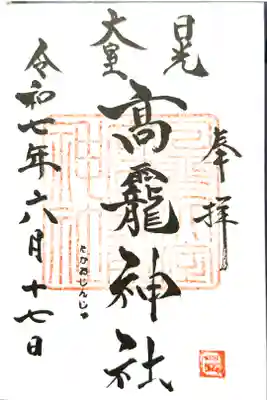 奉拝
日光
大室
高龗神社
たかおじんじゃ
令和七年六月十七日